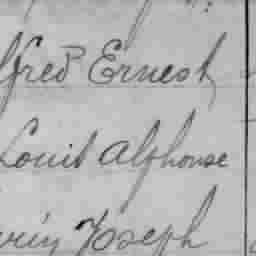 lfred Ernest
Louis Alphonse
Joseph